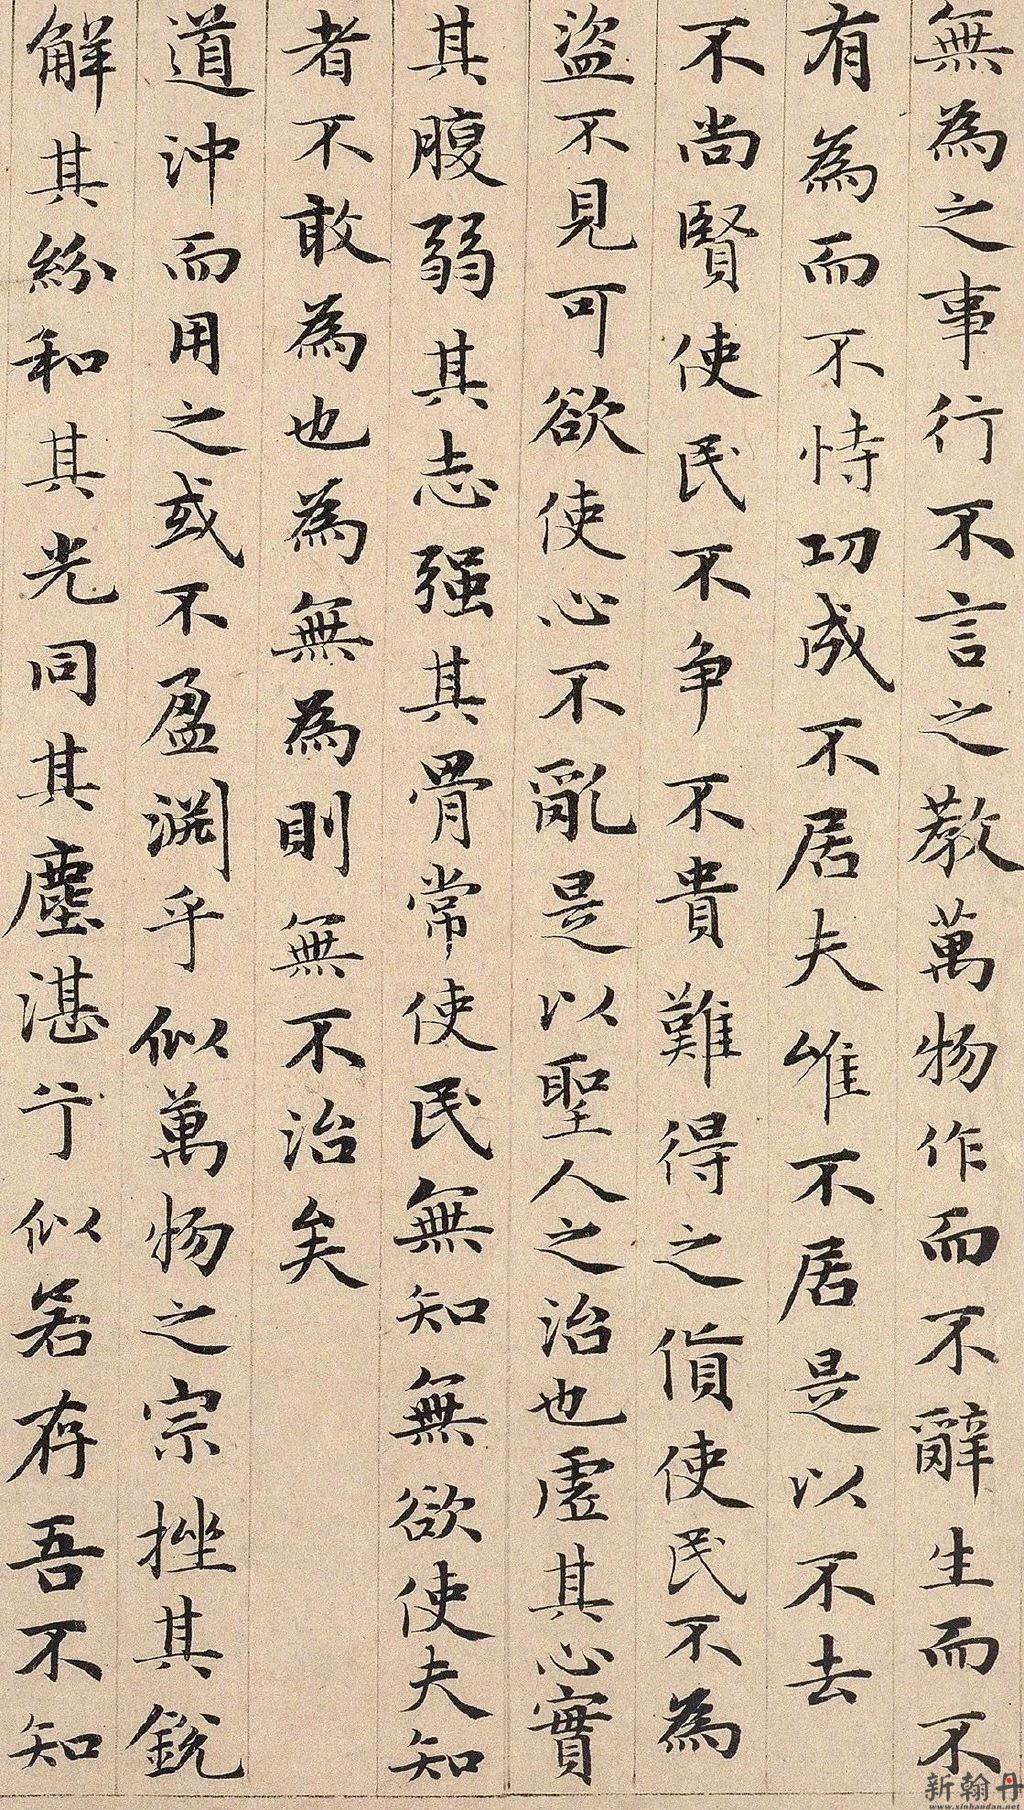 無為之事行不言之教萬物作而不辭生而不
有為而不恃功成不居夫唯不居是以不去
不尚賢使民不争不貴難得之貨使民不為
盜不見可欲使心不亂是以聖人之治也虛其心實
其腹弱其志强其骨常使民無知無欲使夫知
者不敢為也為無為則無不治矣
道沖而用之或不盈淵乎似萬物之宗挫其銳
解其紛和其光同其塵湛兮似若存吾不知
新翰丹
www.xinhandan.net